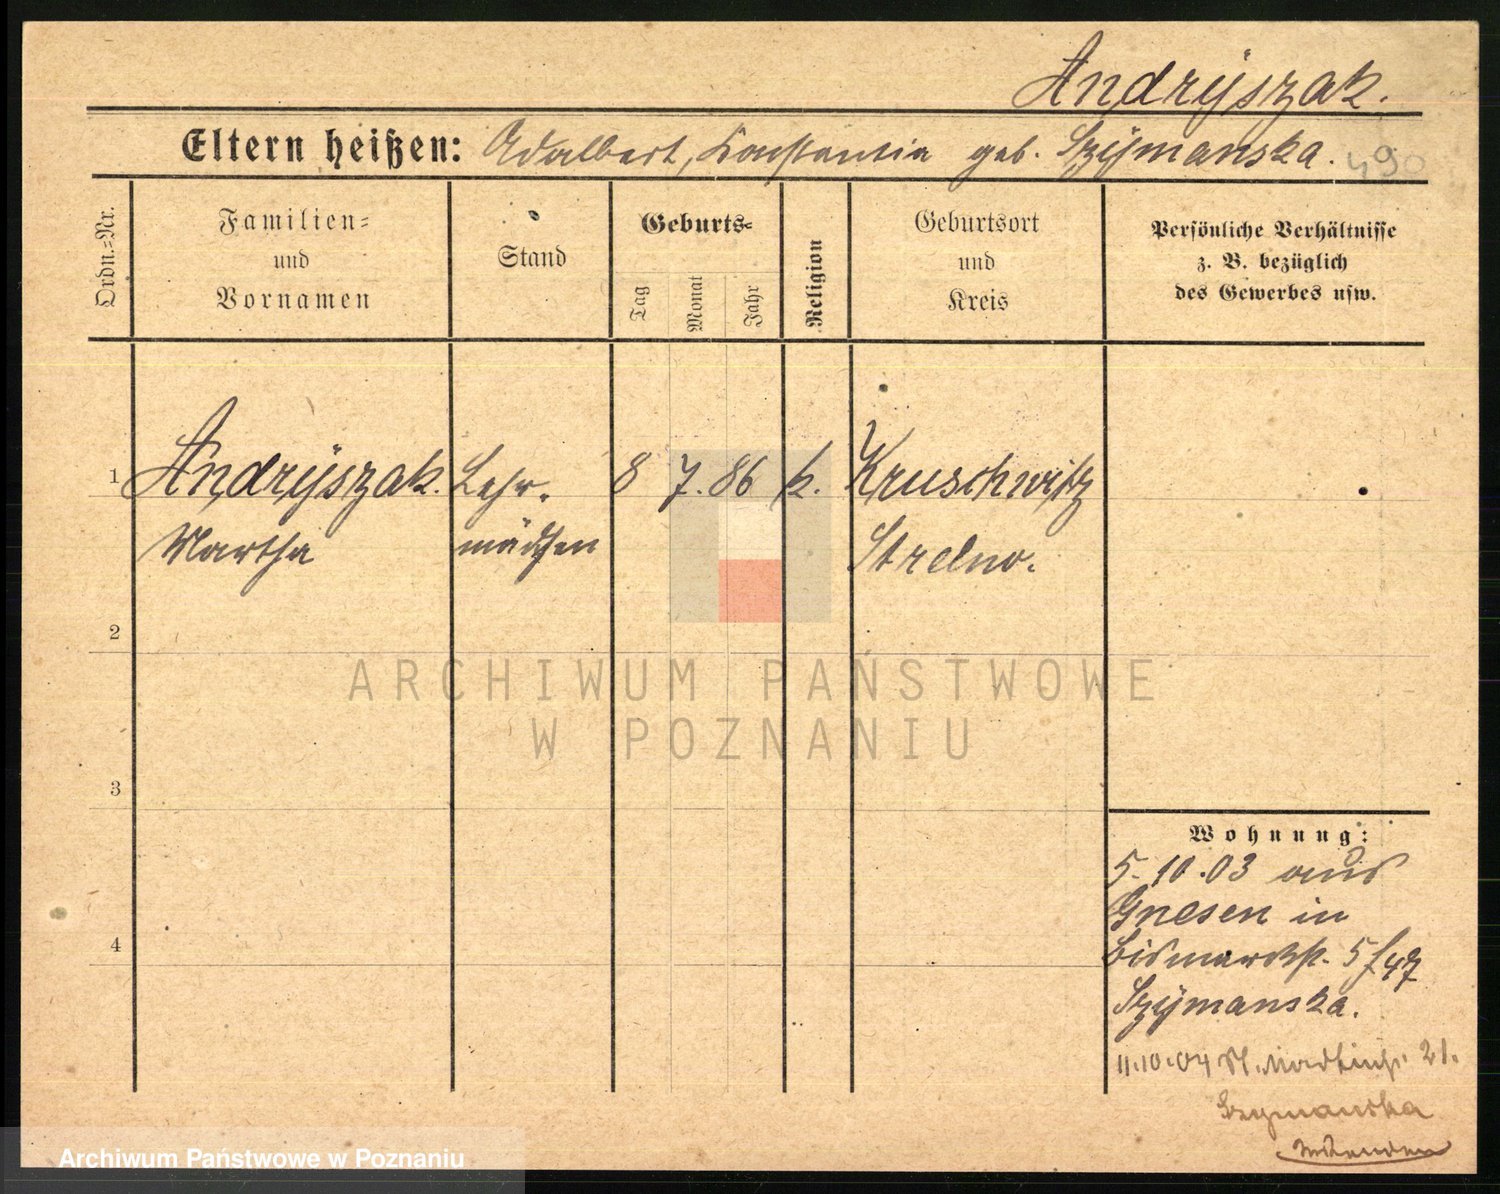 Andryszak.
Eltern heißen: Adalbert, Konstantia geb. Szÿmanska. 490
Ordn.=Nr.
Familien=
und
Vornamen
Stand
Geburts=
Tag
Monat
Jahr
Religion
Geburtsort
und
Kreis
Persönliche Verhältnisse
z. B. bezüglich
des Gewerbes usw.
1 Andrÿszak. Lehr- 8 7. 86 k. Kruschwitz
Martha mädchen Strelno.
2
3
4
Wohnung:
5.10.03 aus
Gnesen in
Bismarckst. 5 f 47
Szÿmanska.
11.10.04 St. Martinst. 21.
Szymanska
ARCHIWUM PAŃSTWOWE
W POZNANIU
Archiwum Państwowe w Poznaniu